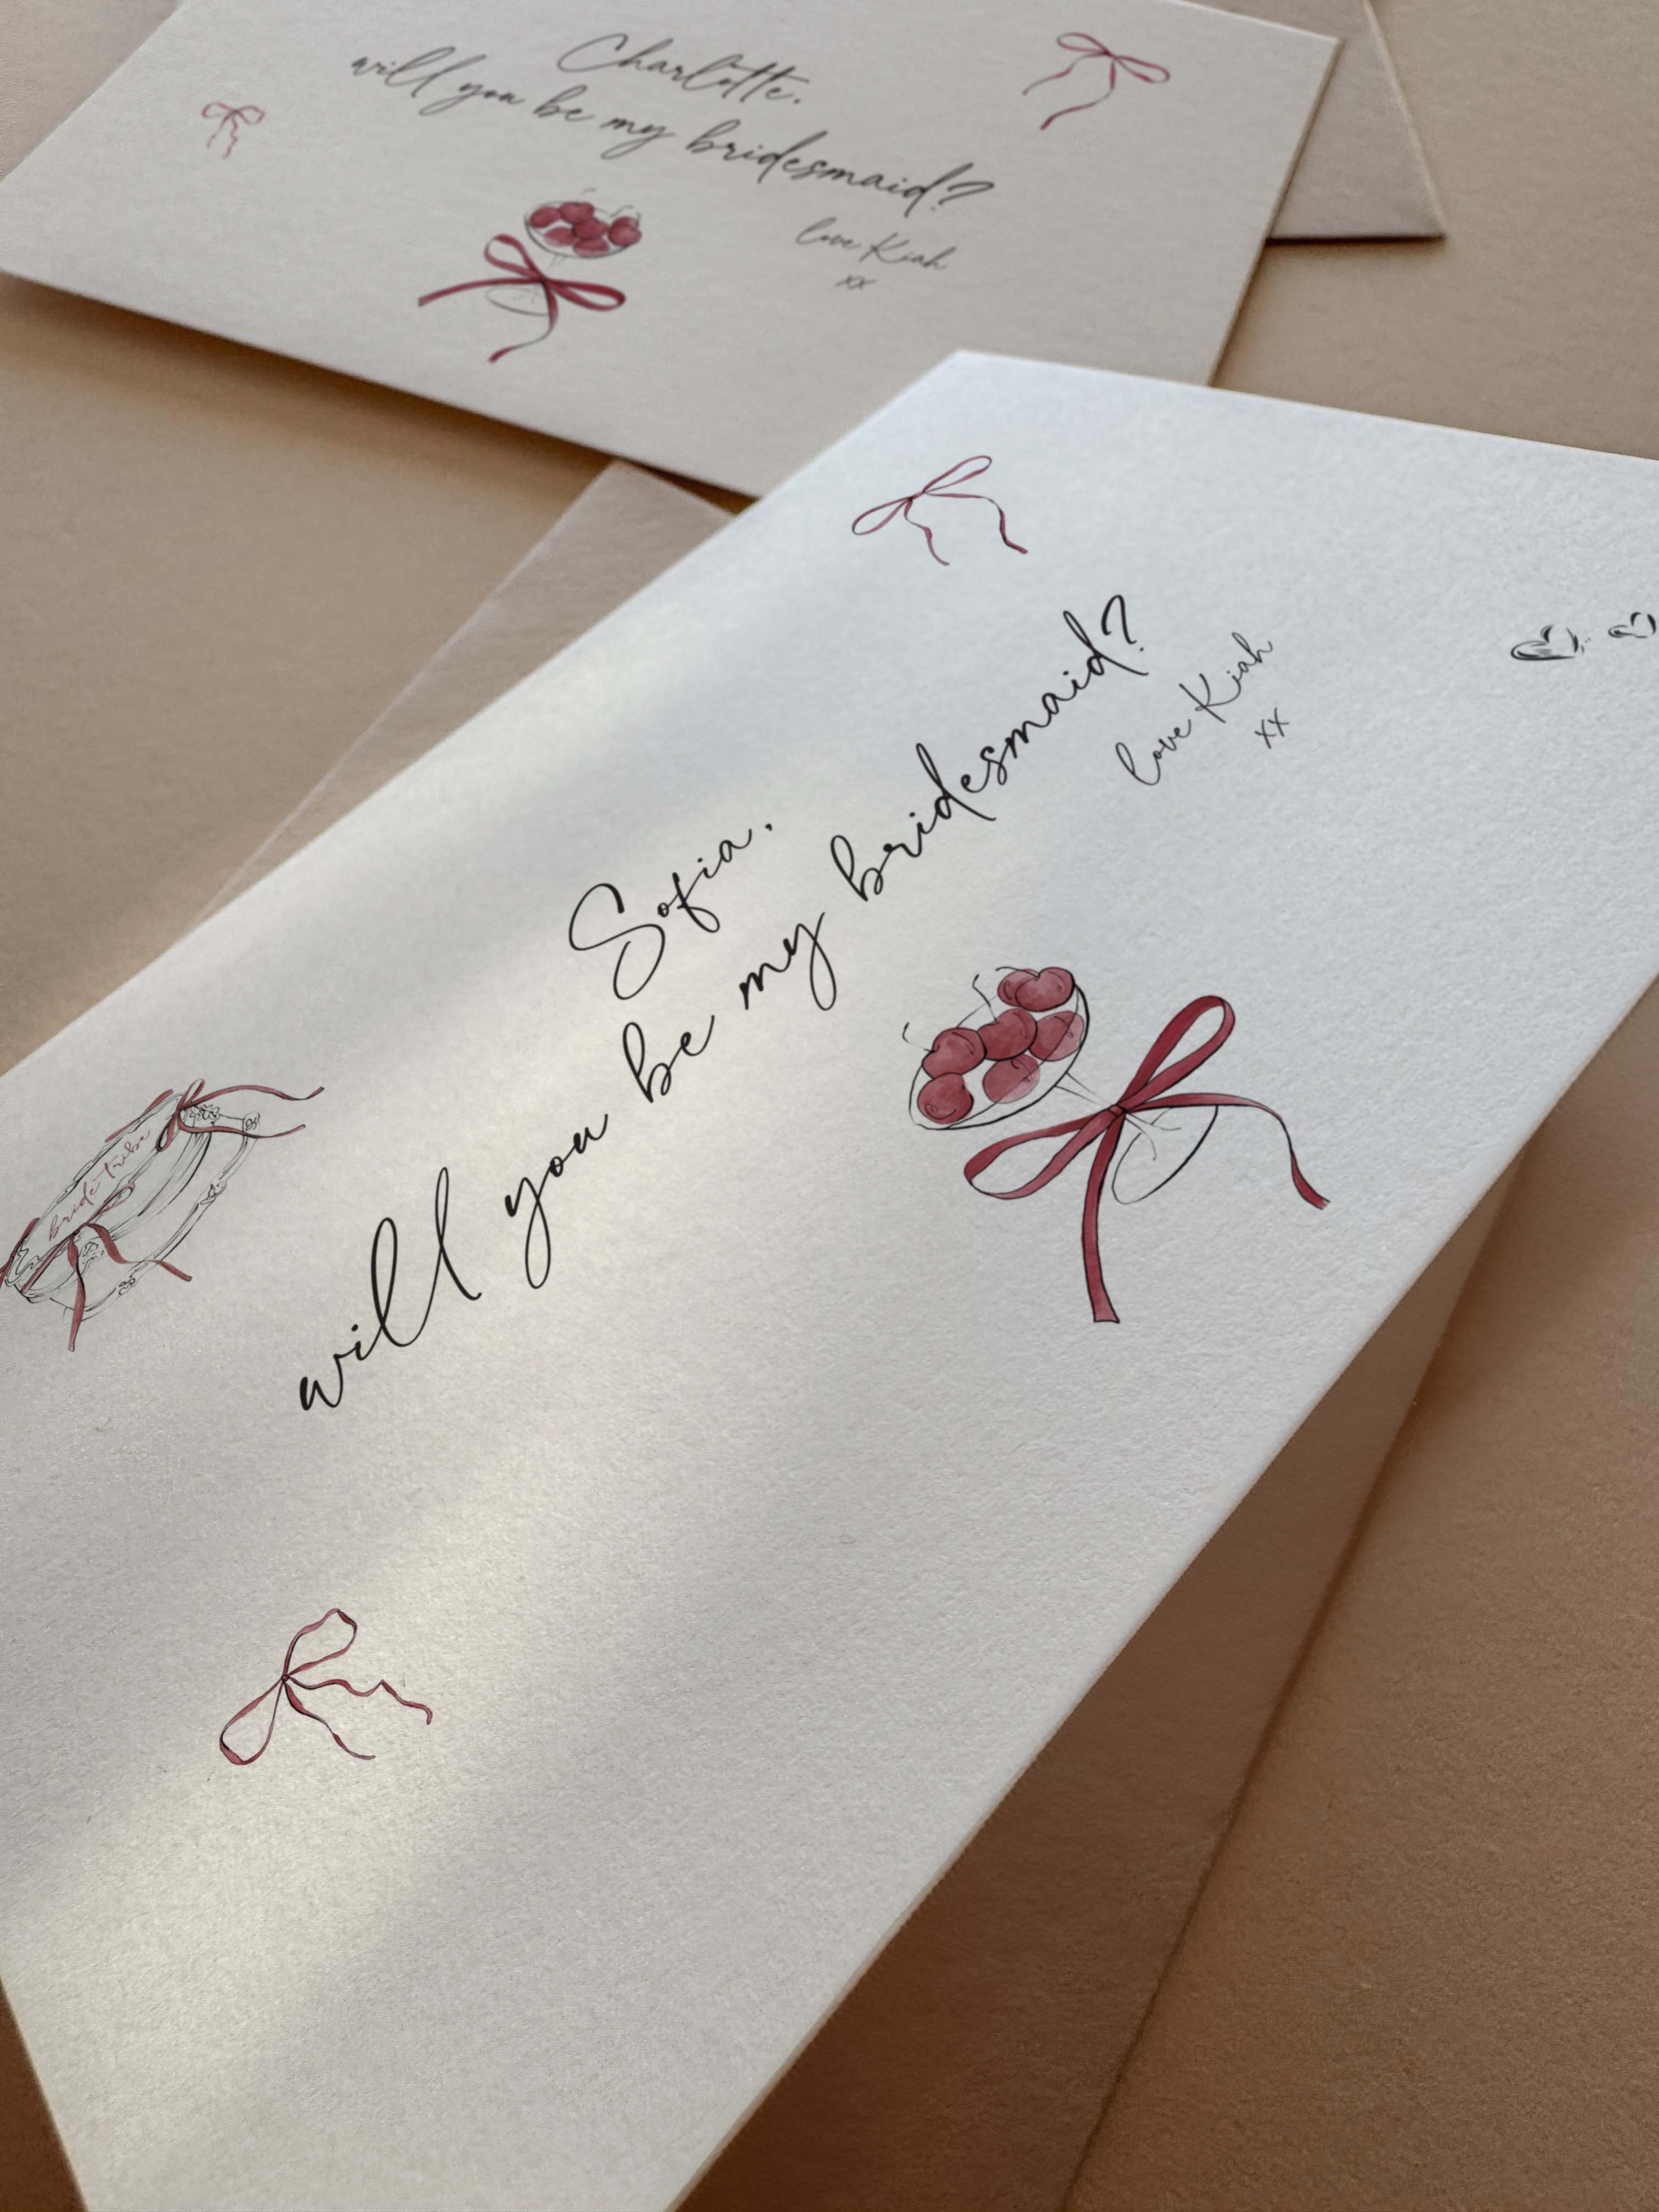 Charlotte.
will you be my bridesmaid?
love Kiah
xx
Sofia.
will you be my bridesmaid?
love Kiah
xx
bride tribe